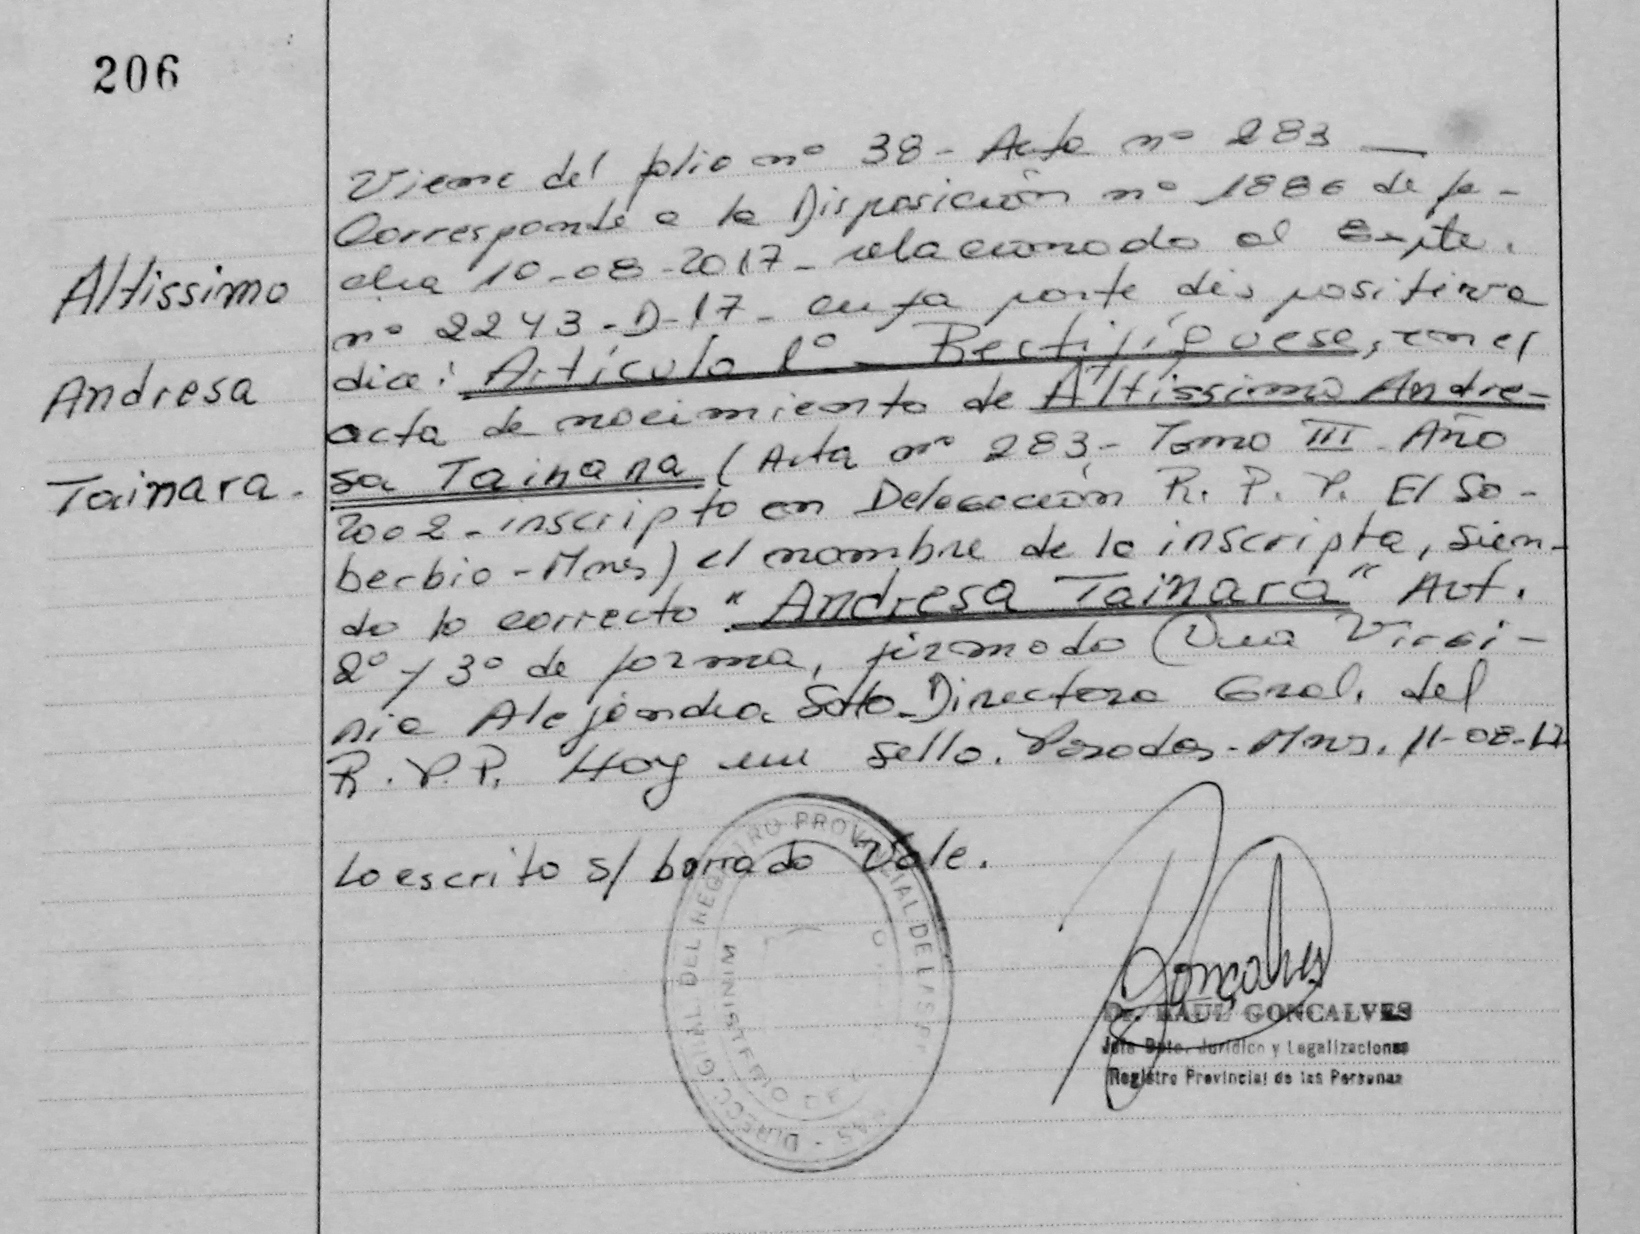 206
Altissimo
Andresa
Tainara.
Viene del folio nº 38 - Acta nº 283 —
Corresponde a la Disposición nº 1886 de fe-
cha 10-08-2017 - relacionado al Expte.
nº 2243-D-17 - cuya parte dispositiva
dice: Artículo 1º - Rectifíquese, en el
acta de nacimiento de Altissimo Andre-
sa Tainana (Acta nº 283 - Tomo III - Año
2002 - inscripto en Delegación R. P. P. El So-
berbio - Mnes) el nombre de la inscripta, sien-
do lo correcto "Andresa Tainara" Art.
2º y 3º de forma, firmado Virgi-
nia Alejandra Soto - Directora Gral. del
R. P. P. Hay un sello. Posadas - Mnes. 11-08-17
Lo escrito s/ borrado Vale.
DIRECC. GRAL DEL REGISTRO PROVINCIAL DE LAS
MINISTERIO DE
Gonçalves
Dr. RAUL GONCALVES
Jefe Dpto. Jurídico y Legalizaciones
Registro Provincial de las Personas